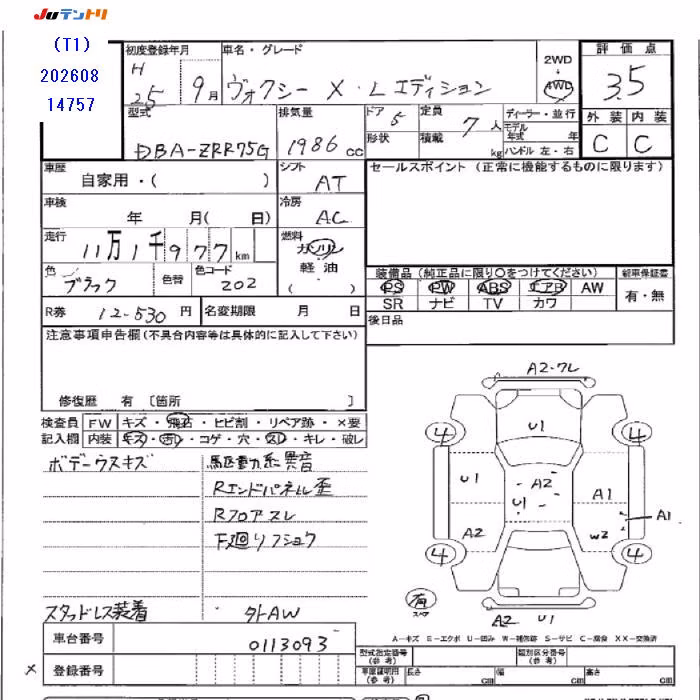 JUテントリ
(T1)
202608
14757
初度登録年月
H 25 9月
車名・グレード
ヴォクシー X・Lエディション
2WD
4WD
評価点
3.5
型式
DBA-ZRR75G
排気量
1986 cc
ドア 5
形状
定員 7人
積載 kg
ディーラー・並行
モデル年式 年
ハンドル 左・右
外装 内装
C C
車歴
自家用・( )
シフト
AT
セールスポイント (正常に機能するものに限ります)
車検
年 月( 日)
冷房
AC
走行
11万1千977km
燃料
ガソリン
軽油
( )
色
ブラック
色替
色コード
202
装備品 (純正品に限り○をつけてください)
新車保証書
PS PW ABS エアB AW
有・無
SR ナビ TV カワ
R券 12-530 円
名変期限 月 日
後日品
注意事項申告欄(不具合内容等は具体的に記入して下さい)
修復歴 有 〔箇所 〕
検査員
記入欄
FW キズ・飛石・ヒビ割・リペア跡・×要
内装 キズ・汚レ・コゲ・穴・スレ・キレ・破レ
ボデーウスキズ
駆動系異音
Rエンドパネル歪
Rフロアスレ
下廻りフショク
スタッドレス装着
外AW
A2-ワレ
U1
4
4
U1
A2
U1
A1
A1
A2
W2
4
4
有
スペア
A2 U1
A-キズ E-エクボ U-凹み W-補修跡 S-サビ C-腐食 XX-交換済
車台番号
0113093
型式指定番号
(参考)
類別区分番号
(参考)
× 登録番号
車庫証明用
(参考)
長さ cm
幅 cm
高さ cm